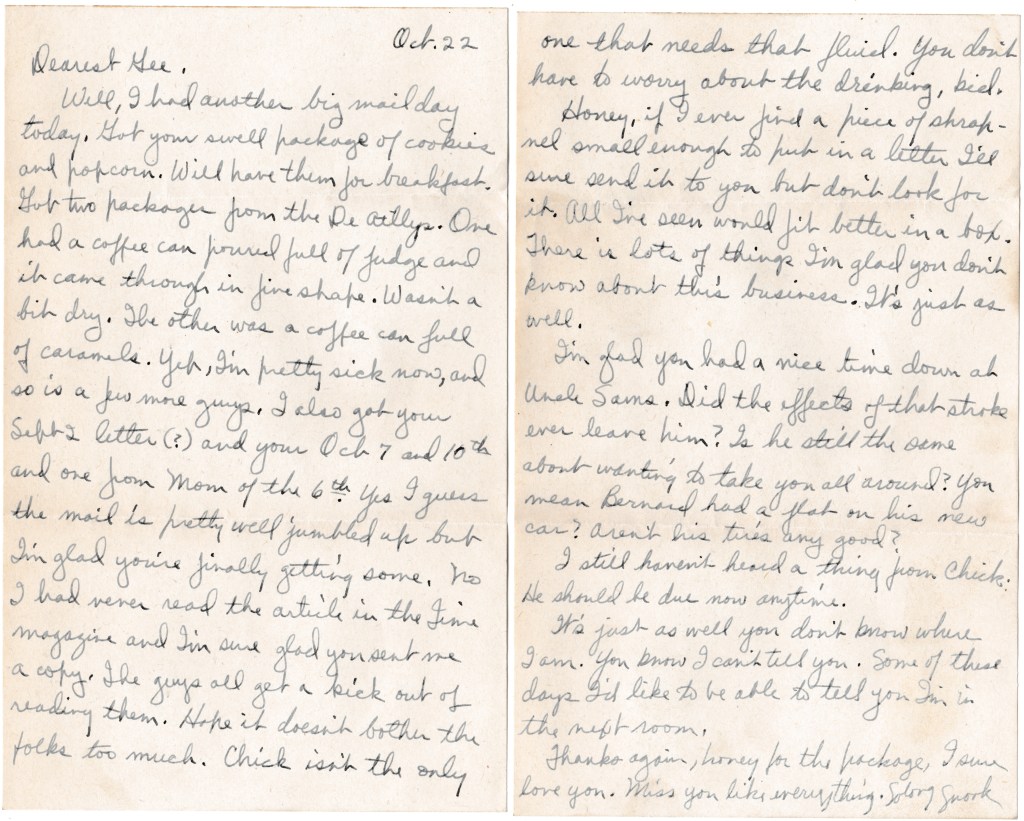 Oct. 22
Dearest Gee,
Well, I had another big mail day
today. Got your swell package of cookies
and popcorn. Will have them for breakfast.
Got two packages from the De . One
had a coffee can poured full of fudge and
it came through in fine shape. Wasn't a
bit dry. The other was a coffee can full
of caramels. Yep, I'm pretty sick now, and
so is a few more guys. I also got your
Sept 2 letter (?) and your Oct 7 and 10th
and one from Mom of the 6th. Yes I guess
the mail is pretty well jumbled up but
I'm glad you're finally getting some. No
I had never read the article in the Time
magazine and I'm sure glad you sent me
a copy. The guys all get a kick out of
reading them. Hope it doesn't bother the
folks too much. Chick isn't the only
one that needs that fluid. You don't
have to worry about the drinking, kid.
Honey, if I ever find a piece of shrap-
nel small enough to put in a letter I'll
sure send it to you but don't look for
it. All I've seen would fit better in a box.
There is lots of things I'm glad you don't
know about this business. It's just as
well.
I'm glad you had a nice time down at
Uncle Sams. Did the effects of that stroke
ever leave him? Is he still the same
about wanting to take you all around? You
mean Bernard had a flat on his new
car? Aren't his tires any good?
I still haven't heard a thing from Chick.
He should be due now anytime.
It's just as well you don't know where
I am. You know I can't tell you. Some of these
days I'd like to be able to tell you I'm in
the next room.
Thanks again, honey for the package, I sure
love you. Miss you like everything. So long Snook